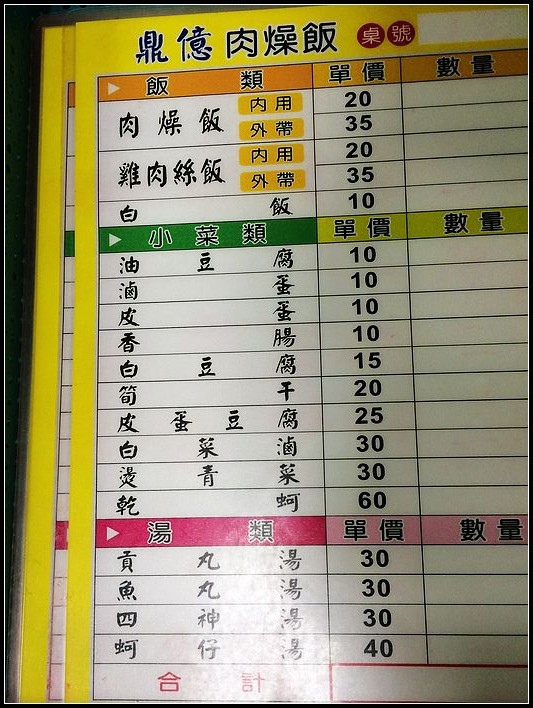 鼎億肉燥飯 桌號
飯類 單價 數量
肉燥飯 內用 20
外帶 35
雞肉絲飯 內用 20
外帶 35
白飯 10
小菜類 單價 數量
油豆腐 10
滷蛋 10
皮蛋 10
香腸 10
白豆腐 15
筍干 20
皮蛋豆腐 25
白菜滷 30
燙青菜 30
乾蚵 60
湯類 單價 數量
貢丸湯 30
魚丸湯 30
四神湯 30
蚵仔湯 40
合計